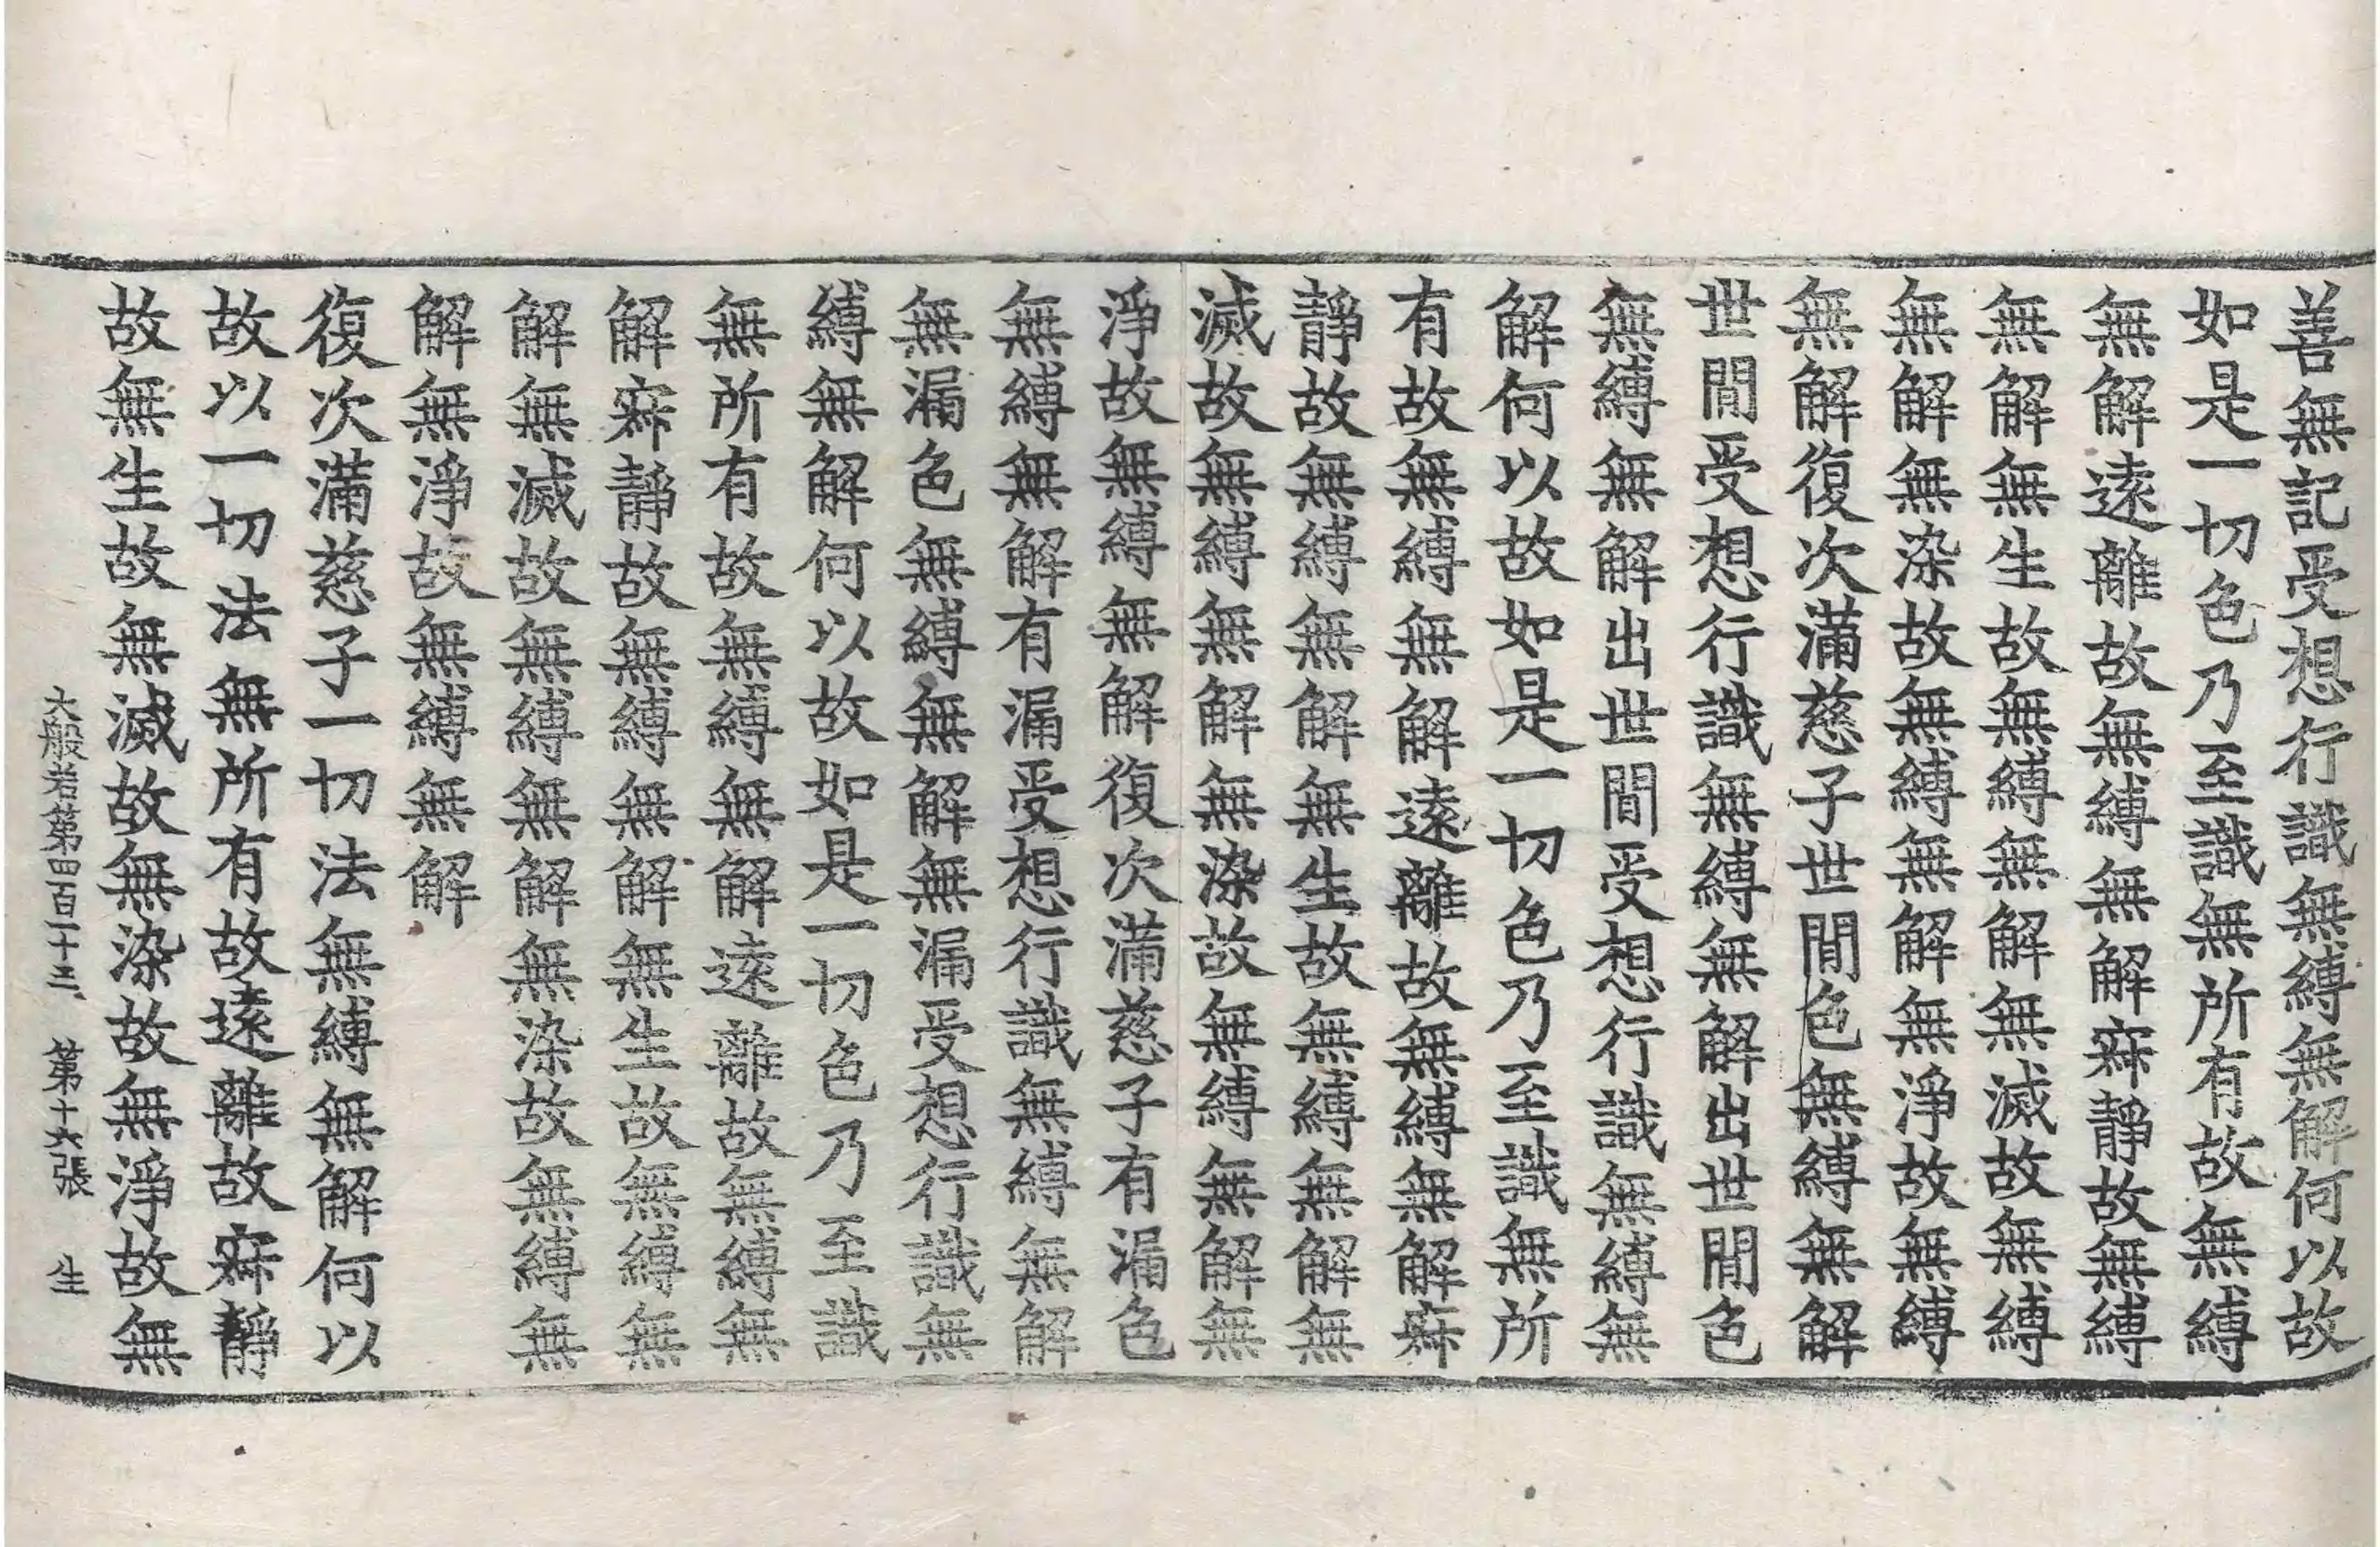 善無記受想行識無縛無解何以故
如是一切色乃至識無所有故無縛
無解遠離故無縛無解寂靜故無縛
無解無生故無縛無解無滅故無縛
無解無染故無縛無解無淨故無縛
無解復次滿慈子世間色無縛無解
世間受想行識無縛無解出世間色
無縛無解出世間受想行識無縛無
解何以故如是一切色乃至識無所
有故無縛無解遠離故無縛無解寂
靜故無縛無解無生故無縛無解無
滅故無縛無解無染故無縛無解無
淨故無縛無解復次滿慈子有漏色
無縛無解有漏受想行識無縛無解
無漏色無縛無解無漏受想行識無
縛無解何以故如是一切色乃至識
無所有故無縛無解遠離故無縛無
解寂靜故無縛無解無生故無縛無
解無滅故無縛無解無染故無縛無
解無淨故無縛無解
復次滿慈子一切法無縛無解何以
故以一切法無所有故遠離故寂靜
故無生故無滅故無染故無淨故無
大般若第四百一十三 第十六張 生